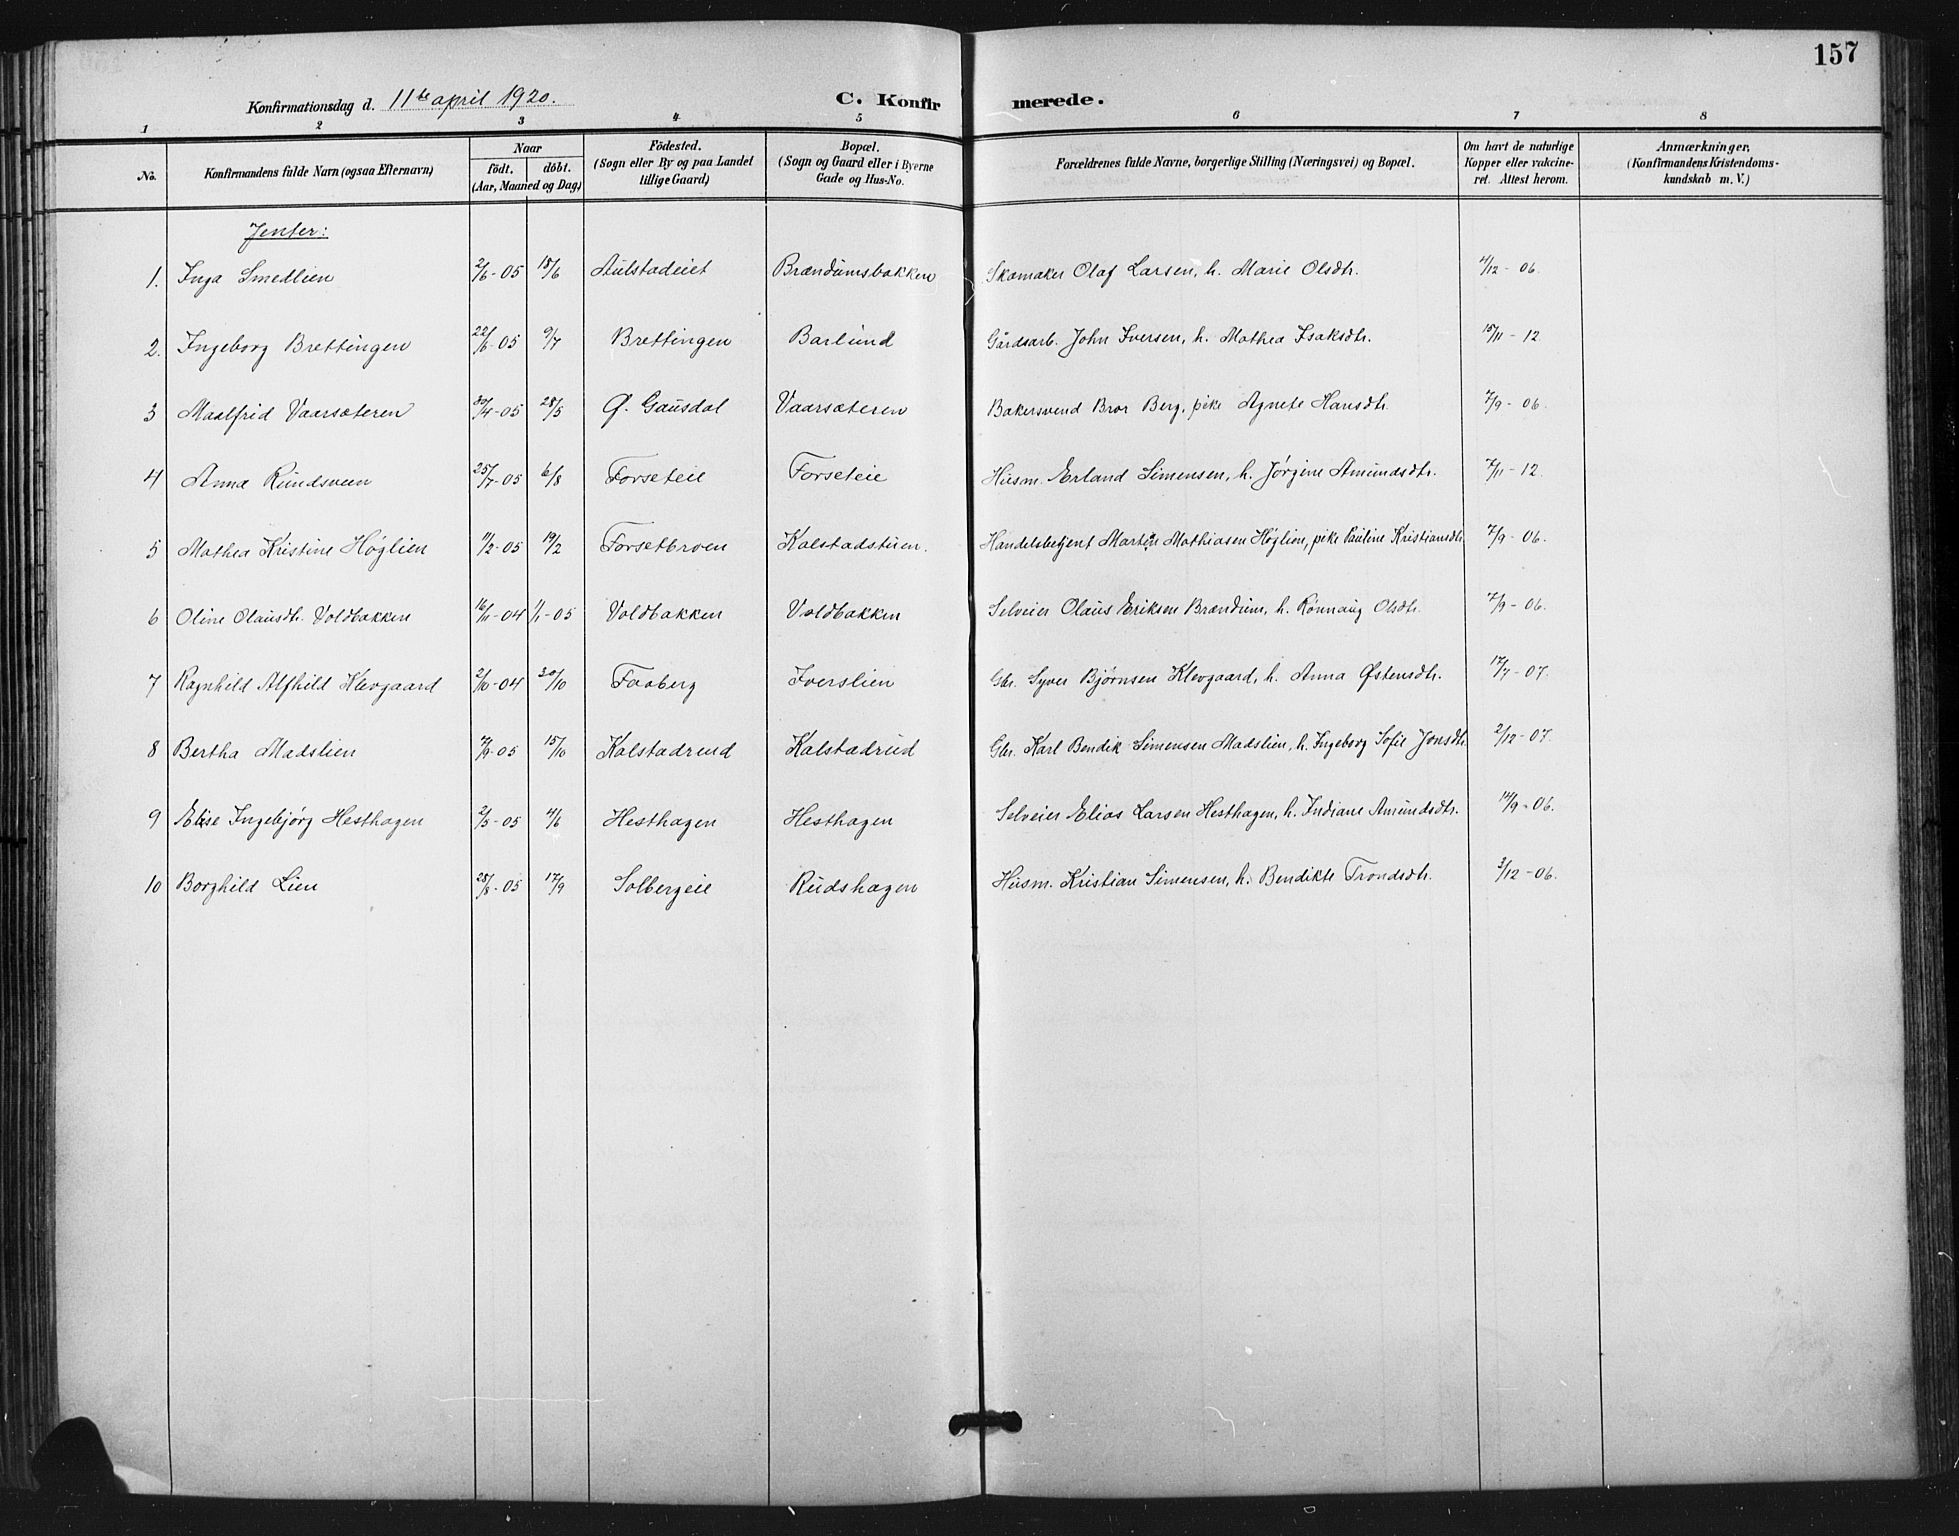 157
Konfirmationsdag d. 11te april 1920. C. Konfirmerede.
1 2 3 4 5 6 7 8
No. Konfirmandens fulde Navn (ogsaa Efternavn) Naar födt. döbt. (Aar, Maaned og Dag) Födested. (Sogn eller By og paa Landet tillige Gaard) Bopæl. (Sogn og Gaard eller i Byerne Gade og Hus-No. Forældrenes fulde Navne, borgerlige Stilling (Næringsvei) og Bopæl. Om havt de naturlige Kopper eller vakcineret. Attest herom. Anmærkninger. (Konfirmandens Kristendomskundskab m. V.)
Jenter:
1. Inga Smedlien 2/6-05 18/6 Aulstadeiet Brændumsbakken Skomaker Olaf Larsen, h. Marie Olsdtr. 4/12-06.
2. Ingeborg Brettingen 22/6-05 9/7 Brettingen Barlund Gårdsarb. John Iversen, h. Mathea Isaksdtr. 15/11-12
3 Maalfrid Vaarsæteren 30/4-05 28/5 Ø. Gausdal Vaarsæteren Bakersvend Bror Berg, pike Agnete Hansdtr. 7/9-06.
4 Anna Rundsveen 25/7-05 6/8 Forseteie Forseteie Husm. Erland Simensen, h. Jørgine Amundsdtr. 7/11-12.
5 Mathea Kristine Høglien 11/2-05 19/2 Forsetbroen Kalstadstuen. Handelsbetjent Martin Mathiasen Høglien, pike Pauline Kristiansdtr. 7/9-06.
6 Oline Olausdtr. Voldbakken 16/11-04 1/1-05 Voldbakken Voldbakken Selveier Olaus Eriksen Brændum, h. Rønnaug Olsdtr. 7/9-06.
7 Ragnhild Alfhild Klevgaard 2/10-04 30/10 Faaberg Iverslien Gbr. Syver Bjørnsen Klevgaard, h. Anna Østensdtr. 17/7-07.
8 Bertha Madslien 7/9-05 15/10 Kalstadrud Kalstadrud Gbr. Karl Bendik Simensen Madslien, h. Ingeborg Sofie Jonsdtr. 2/12-07.
9 Elise Ingebjørg Hesthagen 2/5-05 4/6 Hesthagen Hesthagen Selveier Elias Larsen Hesthagen, h. Indiane Amundsdtr. 14/9-06.
10 Borghild Lien 28/8-05 17/9 Solbergeie Rudshagen Husm. Kristian Simensen, h. Bendikte Trondsdtr. 3/12-06.